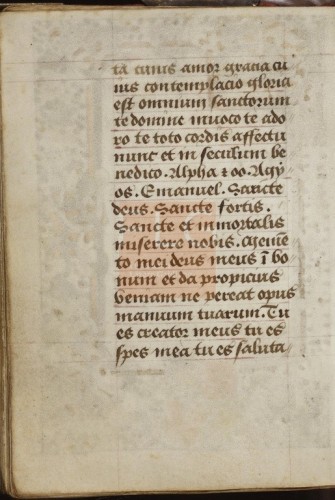 ta cuius amor gracia cu
ius contemplacio gloria
est omnium sanctorum
te domine inuoco te ado
ro te toto cordis affectu
nunc et in seculum be
nedico. Alpha & oo. Agÿ
os. Emanuel. Sancte
deus. Sancte fortis.
Sancte et inmortalis
miserere nobis. Memē
to mei deus meus ī bo
num et da propicius
veniam ne pereat opus
manuum tuarum. Tu
es creator meus tu es
spes mea tu es saluta